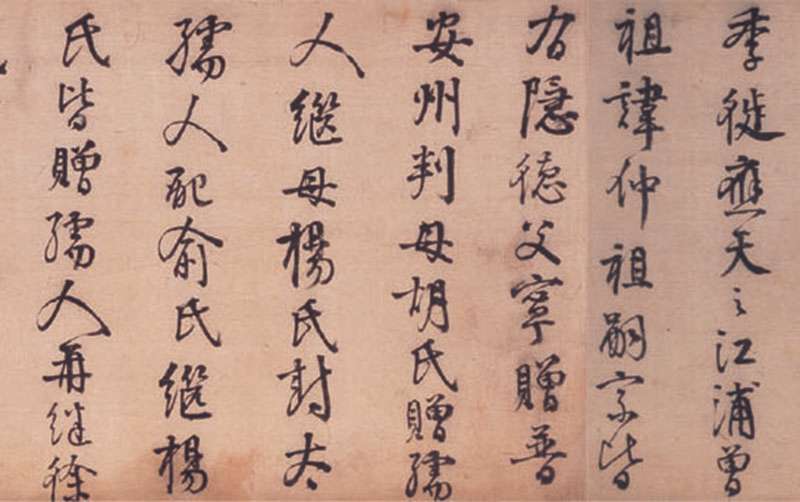 季徙應天之江浦曾
祖諱仲祖嗣宗皆
有隱德父寧贈普
安州判母胡氏贈孺
人繼母楊氏封太
孺人配俞氏繼楊
氏皆贈孺人再继徐